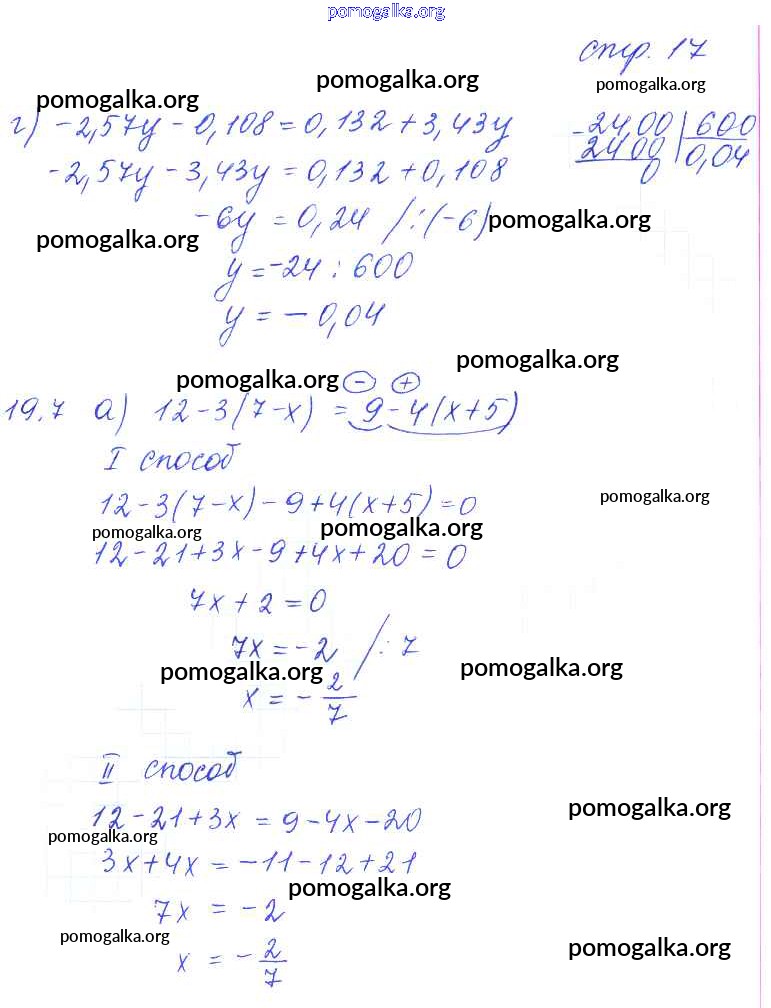 pomogalka.org
стр. 17
pomogalka.org pomogalka.org pomogalka.org
г) -2,57y - 0,108 = 0,132 + 3,43y
-24,00 | 600
-2,57y - 3,43y = 0,132 + 0,108
24 00 | 0,04
0
-6y = 0,24 /:(-6) pomogalka.org
pomogalka.org
y = -24 : 600
y = - 0,04
pomogalka.org
pomogalka.org - +
19.7 а) 12 - 3(7 - x) = 9 - 4(x + 5)
I способ
12 - 3(7 - x) - 9 + 4(x + 5) = 0
pomogalka.org
pomogalka.org pomogalka.org
12 - 21 + 3x - 9 + 4x + 20 = 0
7x + 2 = 0
7x = - 2 /: 7
pomogalka.org pomogalka.org
x = - 2/7
II способ
12 - 21 + 3x = 9 - 4x - 20
pomogalka.org
pomogalka.org
3x + 4x = -11 - 12 + 21
pomogalka.org
7x = -2
pomogalka.org
x = - 2/7
pomogalka.org